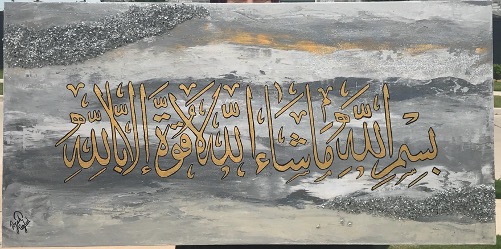 بِسْمِ اللّٰهِ مَا شَاءَ اللّٰهُ لَا قُوَّةَ إِلَّا بِاللّٰهِ